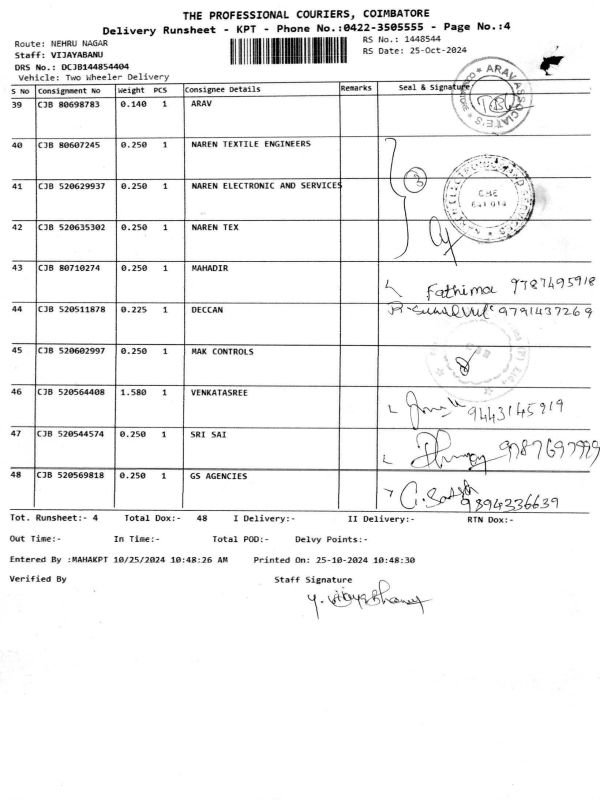 THE PROFESSIONAL COURIERS, COIMBATORE
Delivery Runsheet - KPT - Phone No.:0422-3505555 - Page No.:4
Route: NEHRU NAGAR
RS No.: 1448544
Staff: VIJAYABANU
RS Date: 25-Oct-2024
DRS No.: DCJB144854404
Vehicle: Two Wheeler Delivery
S No Consignment No Weight PCS Consignee Details Remarks Seal & Signature
39 CJB 80698783 0.140 1 ARAV
ARAV ASSOCIATE'S
40 CJB 80607245 0.250 1 NAREN TEXTILE ENGINEERS
41 CJB 520629937 0.250 1 NAREN ELECTRONIC AND SERVICES
3
CBE
641 014
42 CJB 520635302 0.250 1 NAREN TEX
43 CJB 80710274 0.250 1 MAHADIR
Fathima 9787495918
44 CJB 520511878 0.225 1 DECCAN
9791437269
45 CJB 520602997 0.250 1 MAK CONTROLS
46 CJB 520564408 1.580 1 VENKATASREE
9443145919
47 CJB 520544574 0.250 1 SRI SAI
48 CJB 520569818 0.250 1 GS AGENCIES
9894336639
Tot. Runsheet:- 4 Total Dox:- 48 I Delivery:- II Delivery:- RTN Dox:-
Out Time:- In Time:- Total POD:- Delvy Points:-
Entered By :MAHAKPT 10/25/2024 10:48:26 AM Printed On: 25-10-2024 10:48:30
Verified By Staff Signature